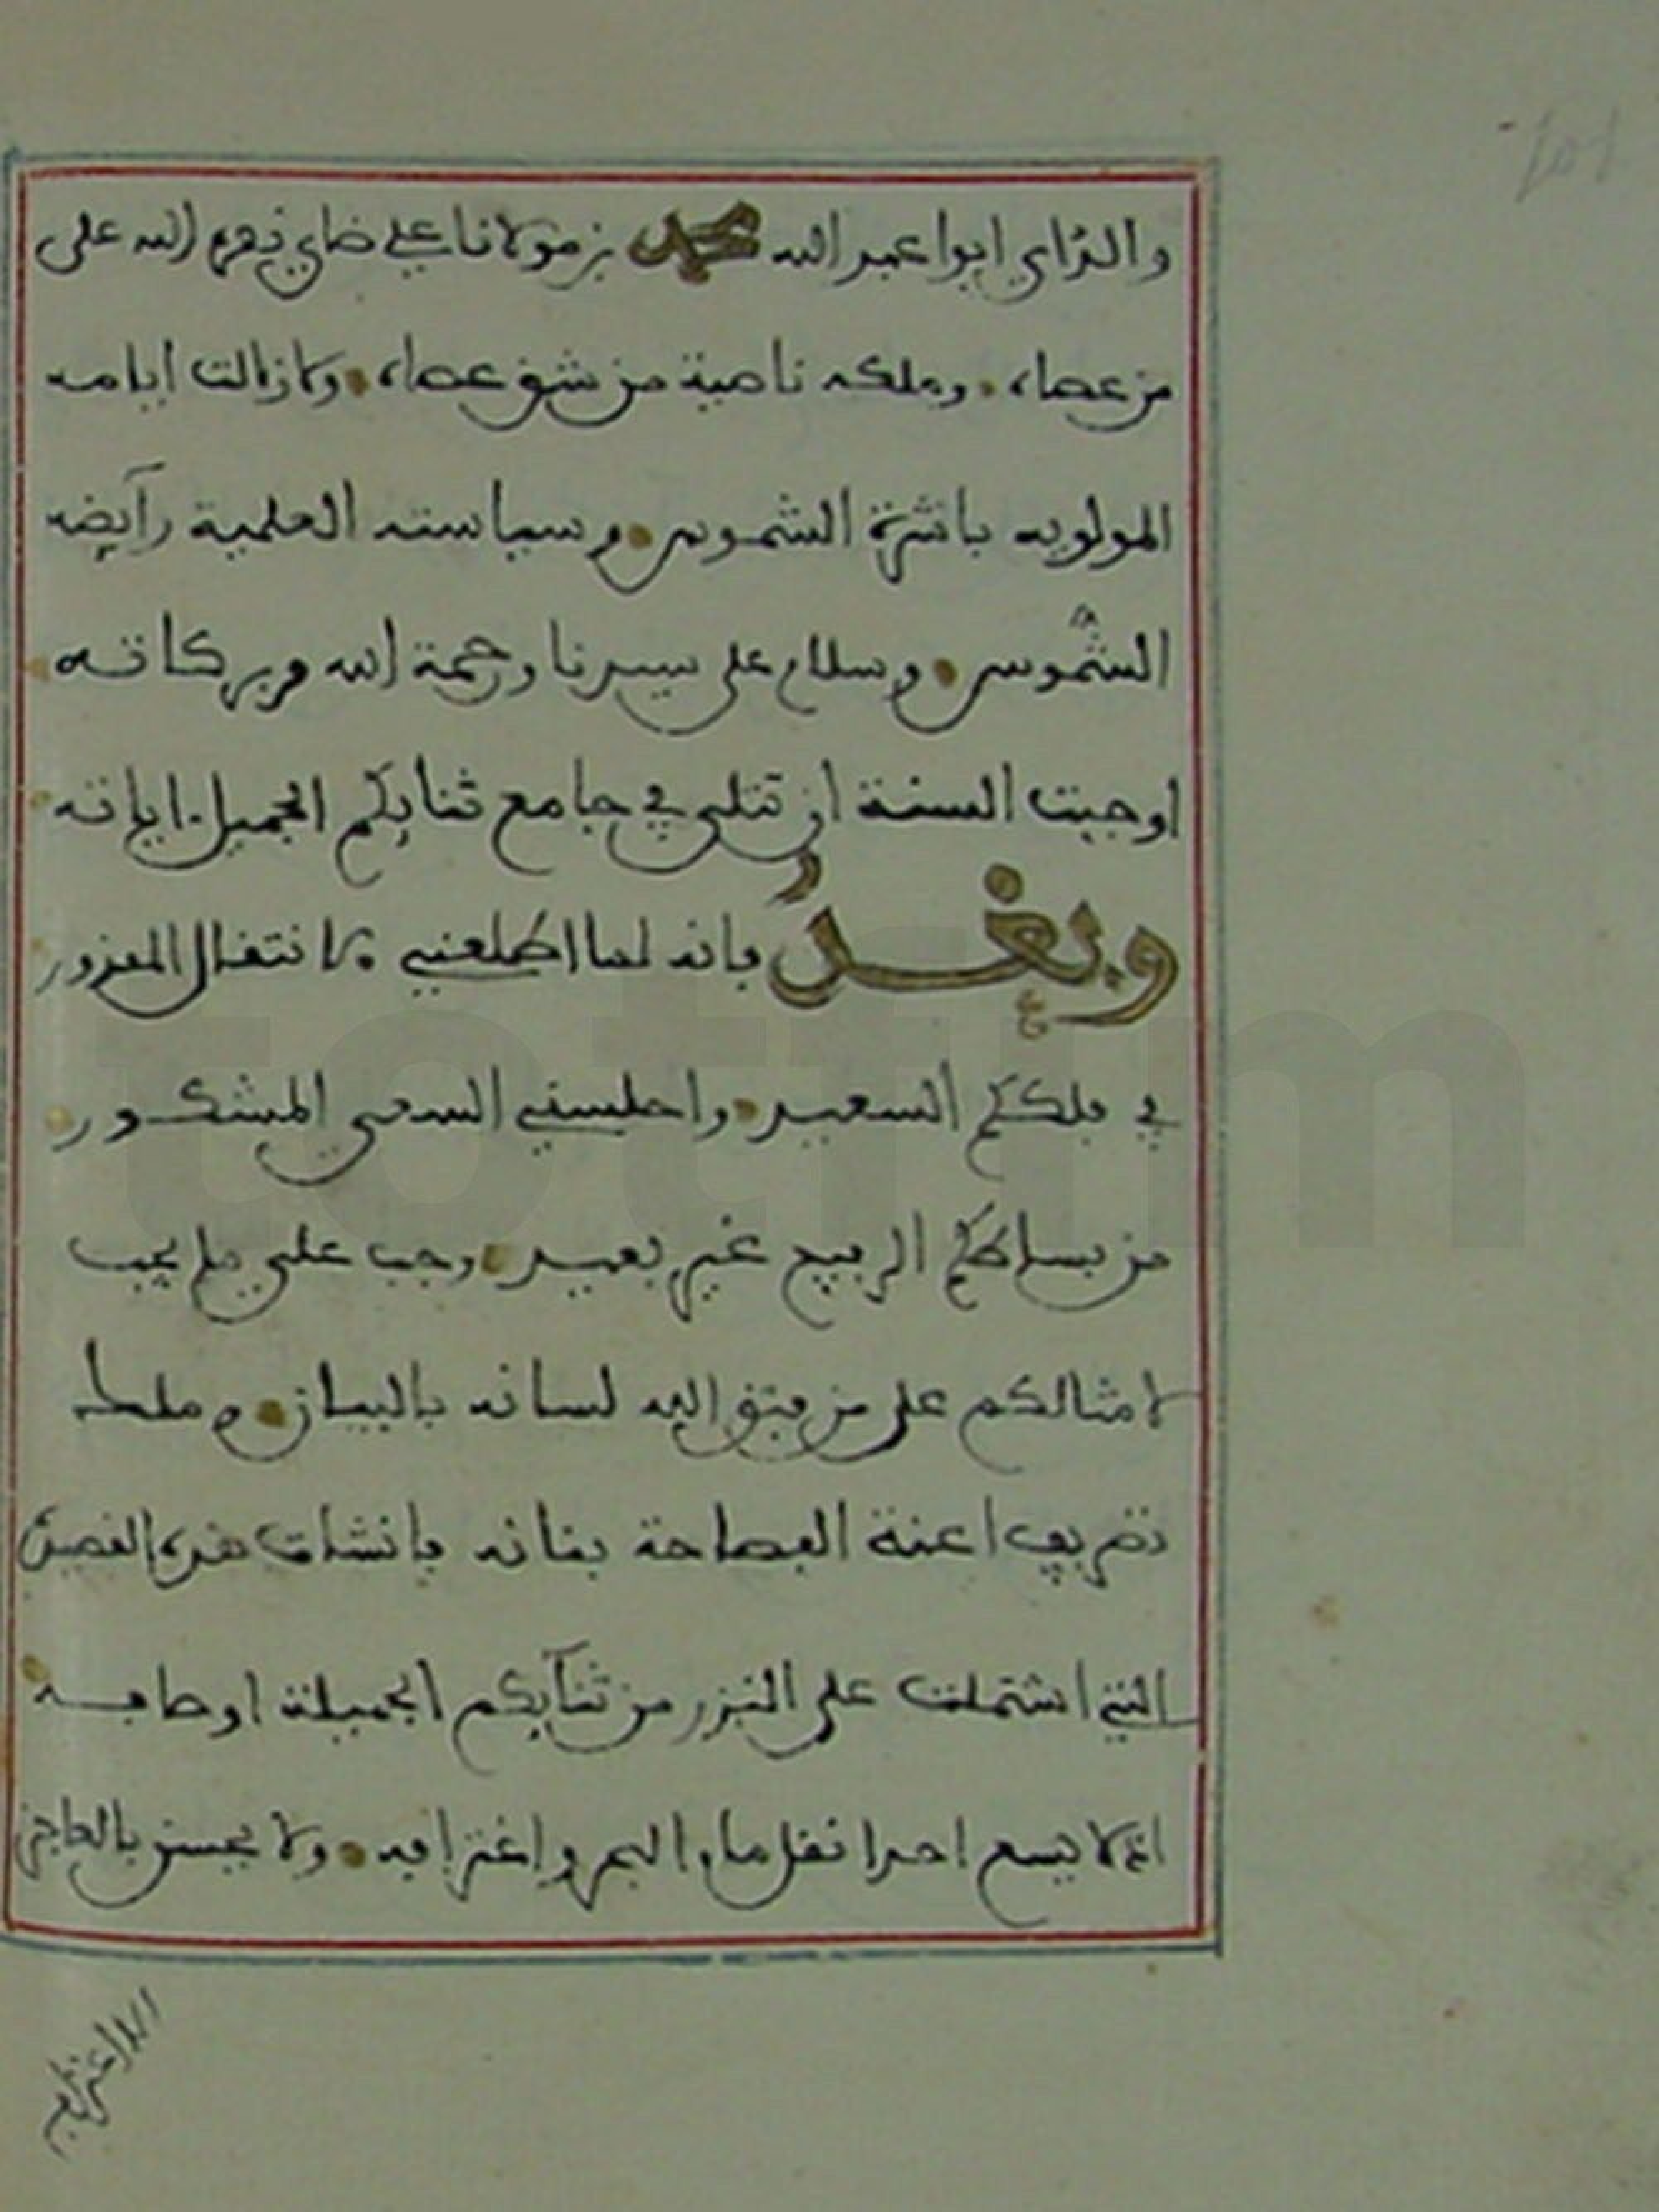 والداي ابوا عبد الله محمد بن مولانا علي ضاي نصره الله على
من عصاه وملكه ناصية من شق عصاه ولا زالت ايامه
المولويه باشرة الشموس وسياسته العلمية رآيضه
الشموس وسلام على سيدنا ورحمة الله وبركاته
اوجبت السنة ان تتلى في جامع ثنايكم الجميل اياته
وبعد فانه لما اطلعني الانتقال المعزور
في فلككم السعيد واجلسني السعي المشكور
من بساطكم الرفيع غير بعيد وجب علي ما يجب
لامثالكم على من فتق الله لسانه بالبيان وملك
تصريف اعنة الفصاحة بنانه فانشات هذه القصيدة
التي اشتملت على النزر من ثنآيكم الجميلة اوصافه
اذ لا يسع احدا نقل ماء اليم واغترافه ولا يحسن بالعاجز
الا الاعتراف